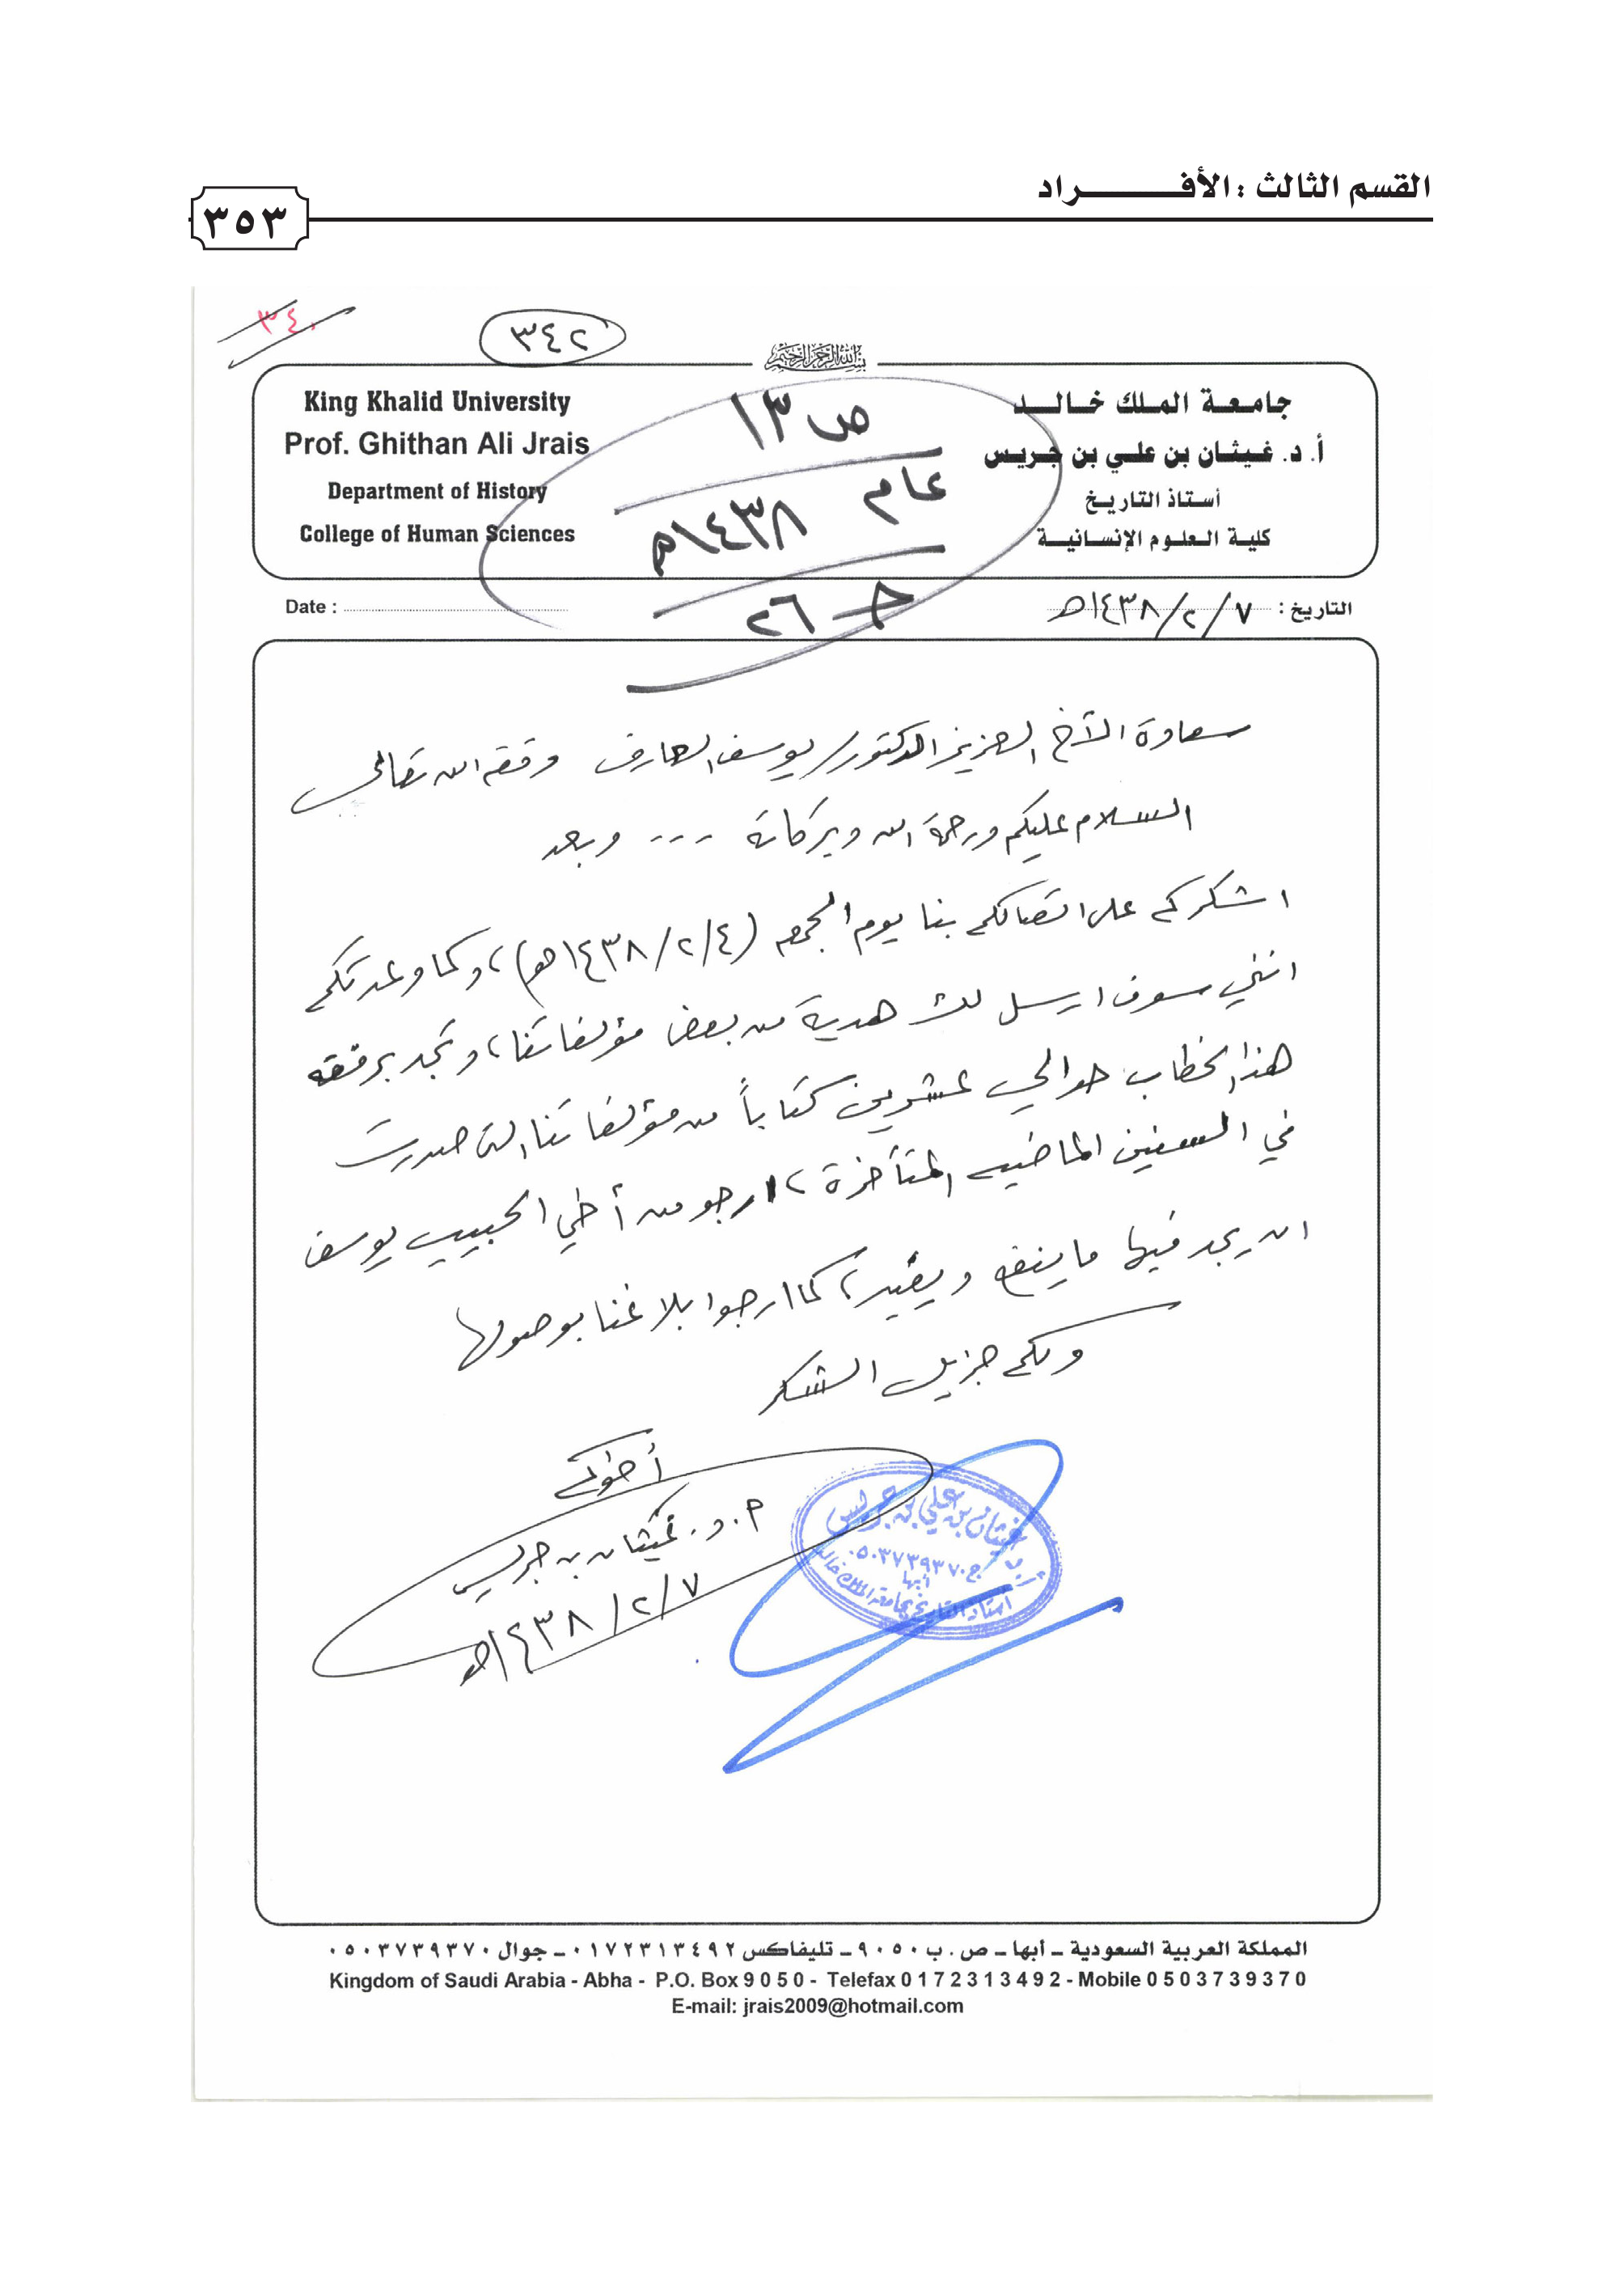 القسم الثالث : الأفــــــــراد
٣٥٣
٣٤٠
٣٤٢
بسم الله الرحمن الرحيم
جامعة الملك خالد
أ. د. غيثان بن علي بن جريس
أستاذ التاريخ
كلية العلوم الإنسانية
King Khalid University
Prof. Ghithan Ali Jrais
Department of History
College of Human Sciences
ص ١٣
عام ١٤٣٨هـ
حـ ٢٦
التاريخ : ٧/ ٢/ ١٤٣٨هـ
Date :
سعادة الأخ العزيز الدكتور/ يوسف العارف وفقه الله تعالى
السلام عليكم ورحمة الله وبركاته --- وبعد
اشكركم على اتصالكم بنا يوم الجمعه (٤/ ٢/ ١٤٣٨هـ)، وكما وعدتكم
انني سوف ارسل لك هدية من بعض مؤلفاتنا، وتجد برفقه
هذا الخطاب حوالي عشرين كتاباً من مؤلفاتنا التي صدرت
في السنين الماضيه المتأخرة، ارجو من أخي الحبيب يوسف
ان يجد فيها ما ينفع ويفيد، كما ارجوا بلاغنا بوصولها
ولكم جزيل الشكر
أخوكم
أ. د. غيثان بن جريس
٧/ ٢/ ١٤٣٨هـ
أ. د. غيثان بن علي بن جريس
ج. ٠٥٠٣٧٣٩٣٧٠
أبها
استاذ التاريخ بجامعة الملك خالد
المملكة العربية السعودية ـ أبها ـ ص. ب ٩٠٥٠ ـ تليفاكس ٠١٧٢٣١٣٤٩٢ ـ جوال ٠٥٠٣٧٣٩٣٧٠
Kingdom of Saudi Arabia - Abha - P.O. Box 9 0 5 0 - Telefax 0 1 7 2 3 1 3 4 9 2 - Mobile 0 5 0 3 7 3 9 3 7 0
E-mail: jrais2009@hotmail.com